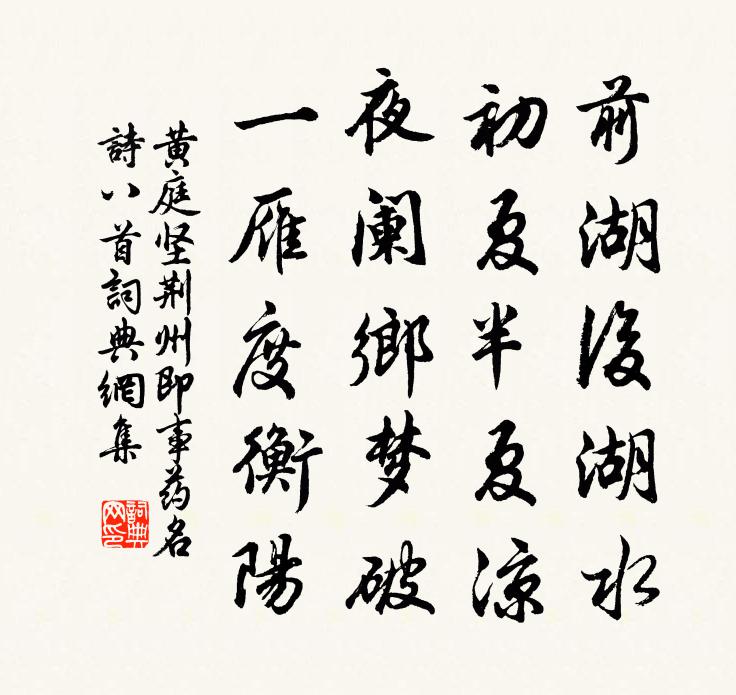 前湖後湖水
初夏半夏涼
夜阑鄉梦破
一雁度衡陽
黄庭坚荆州即事药名
詩八首詞典網集
詞典
网印